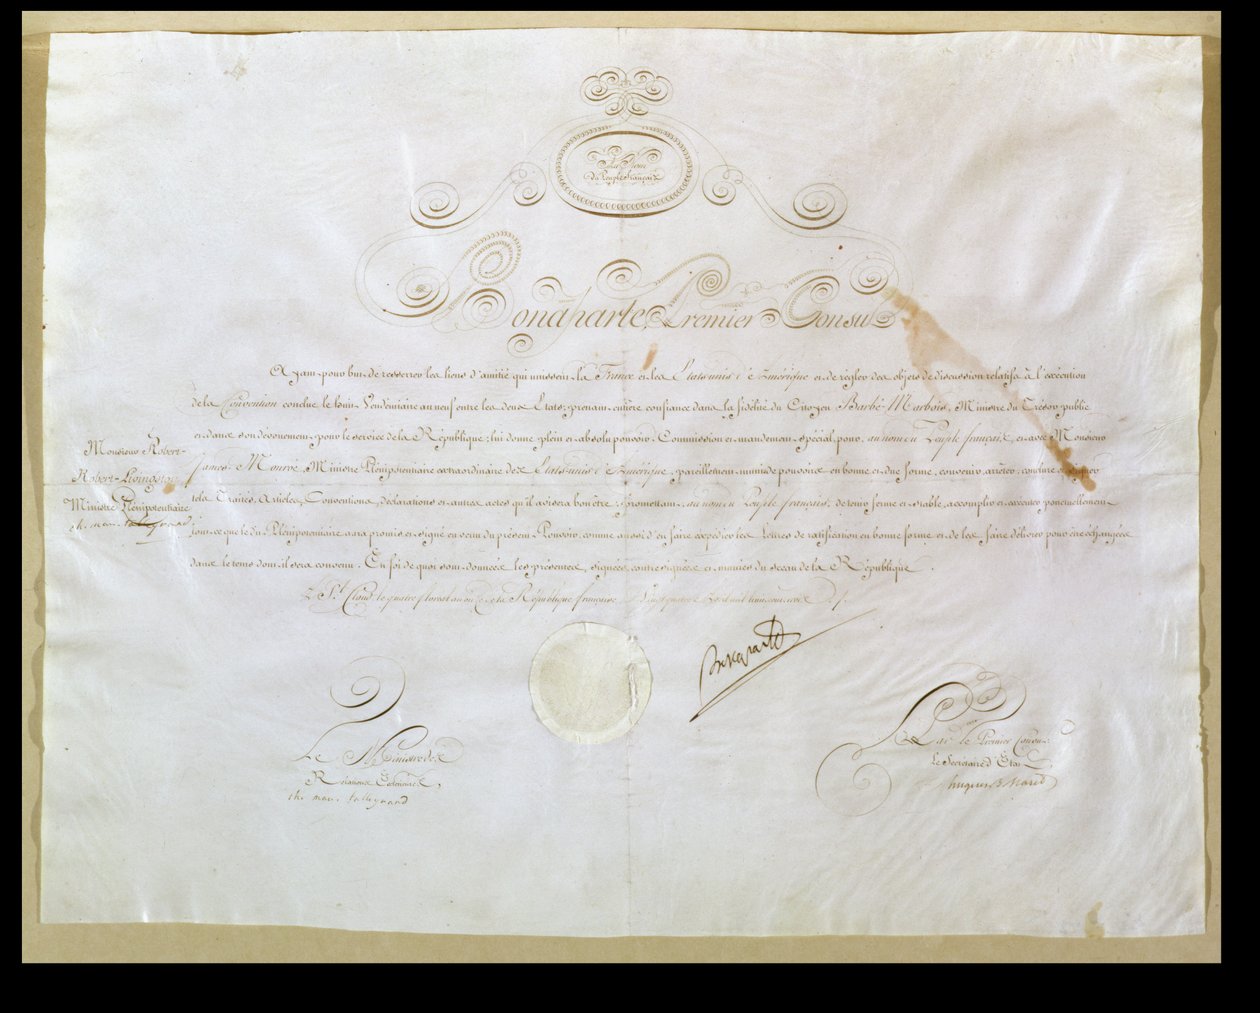 Au Nom
du Peuple Français
Bonaparte, Premier Consul
Ayant pour but de resserrer les liens d'amitié qui unissent la France et les Etats unis d'Amérique et de régler des objets de discussion relatifs à l'exécution
de la Convention conclue le huit Vendémiaire an neuf entre les deux Etats; prenant entière confiance dans la fidélité du Citoyen Barbé-Marbois, Ministre du Trésor public
et dans son dévouement pour le service de la République; lui donne plein et absolu pouvoir, Commission et mandement spécial pour, au nom du Peuple français, et avec Monsieur
James Monroe, Ministre Plénipotentiaire extraordinaire des Etats unis d'Amérique, pareillement muni de pouvoirs en bonne et due forme, convenir, arrêter, conclure et signer
tels Traités, Articles, Conventions, déclarations et autres actes qu'il avisera bon être; promettant, au nom du Peuple français, de tenir ferme et stable, accomplir et exécuter ponctuellement
tout ce que le dit Plénipotentiaire aura promis et signé en vertu du présent Pouvoir, comme aussi d'en faire expédier les Lettres de ratification en bonne forme et de les faire délivrer pour être échangées
dans le tems dont il sera convenu. En foi de quoi sont données les présentes, signées, contre signées et munies du sceau de la République.
à St. Cloud le quatre floréal an onze de la République française
Monsieur Robert-
Robert-Livingston
Ministre Plénipotentiaire
ch. mau. talleyrand
Bonaparte
Le Ministre des
Relations Extérieures,
ch. mau. talleyrand
Par le Premier Consul:
le Secrétaire d'Etat,
hugues B. Maret